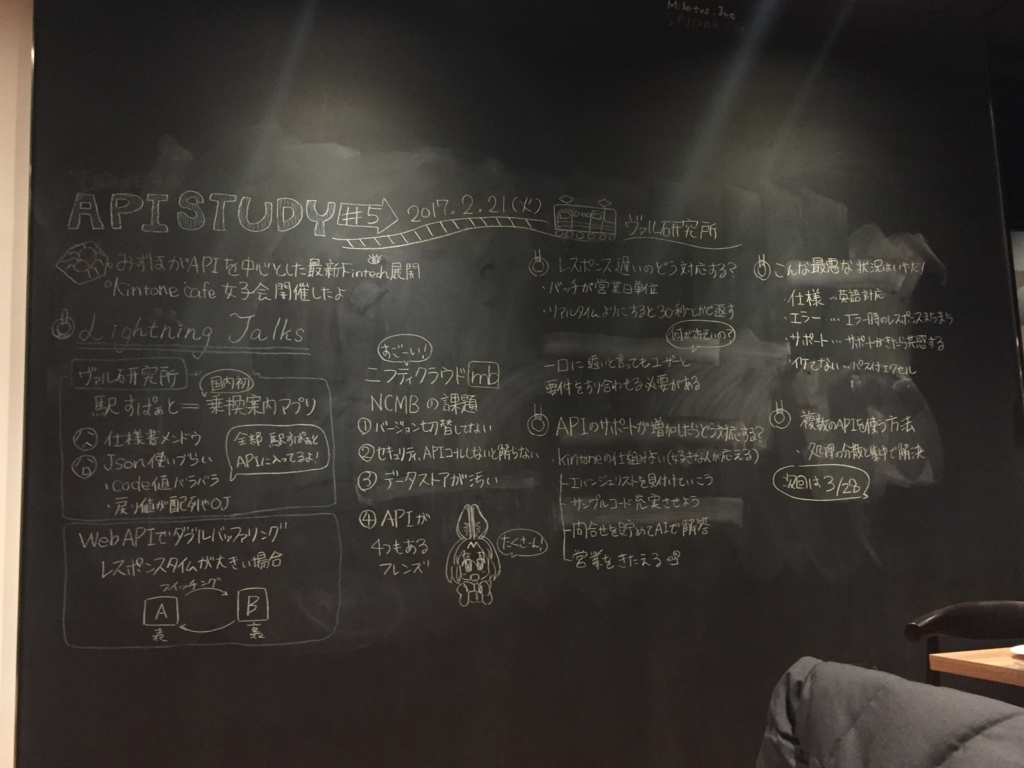 API STUDY #5 2017.2.21(火) ヴァル研究所
みずほがAPIを中心とした最新Fintech展開
Kintone cafe 女子会開催したよ
Lightning Talks
ヴァル研究所
国内初
駅すぱぁと＝乗換案内アプリ
仕様書メンドウ
Json使いづらい
・code値バラバラ
・戻り値が配列やOJ
全部 駅すぱぁと
APIに入ってるよ!
Web APIでダブルバッファリング
レスポンスタイムが大きい場合
スイッチング
A B
表 裏
すごーい!
ニフティクラウド mb
NCMBの課題
① バージョン切替してない
② セキュリティ、APIコールしないと解らない
③ データストアが汚い
④ APIが
4つもある
フレンズ
たくさーん!
レスポンス遅いのどう対応する?
・バッチが営業日単位
・リアルタイムようにすると30秒でしか返す
何が出ていいの?
一口に遅いと言ってもユーザーと
要件をすり合わせる必要がある
APIのサポートが増加したらどう対応する?
・エバンジェリストを見付けていこう
・サンプルコード充実させよう
問合せを貯めてAIで解答
営業をきたえる
こんな最悪な状況はいやだ!
・仕様…英語対応
・エラー…エラー時のレスポンスまちまち
・サポート…
・イケてない…パスワードエクセル
複数のAPIを使う方法
・処理の分散と集中で解決
次回は 3/28